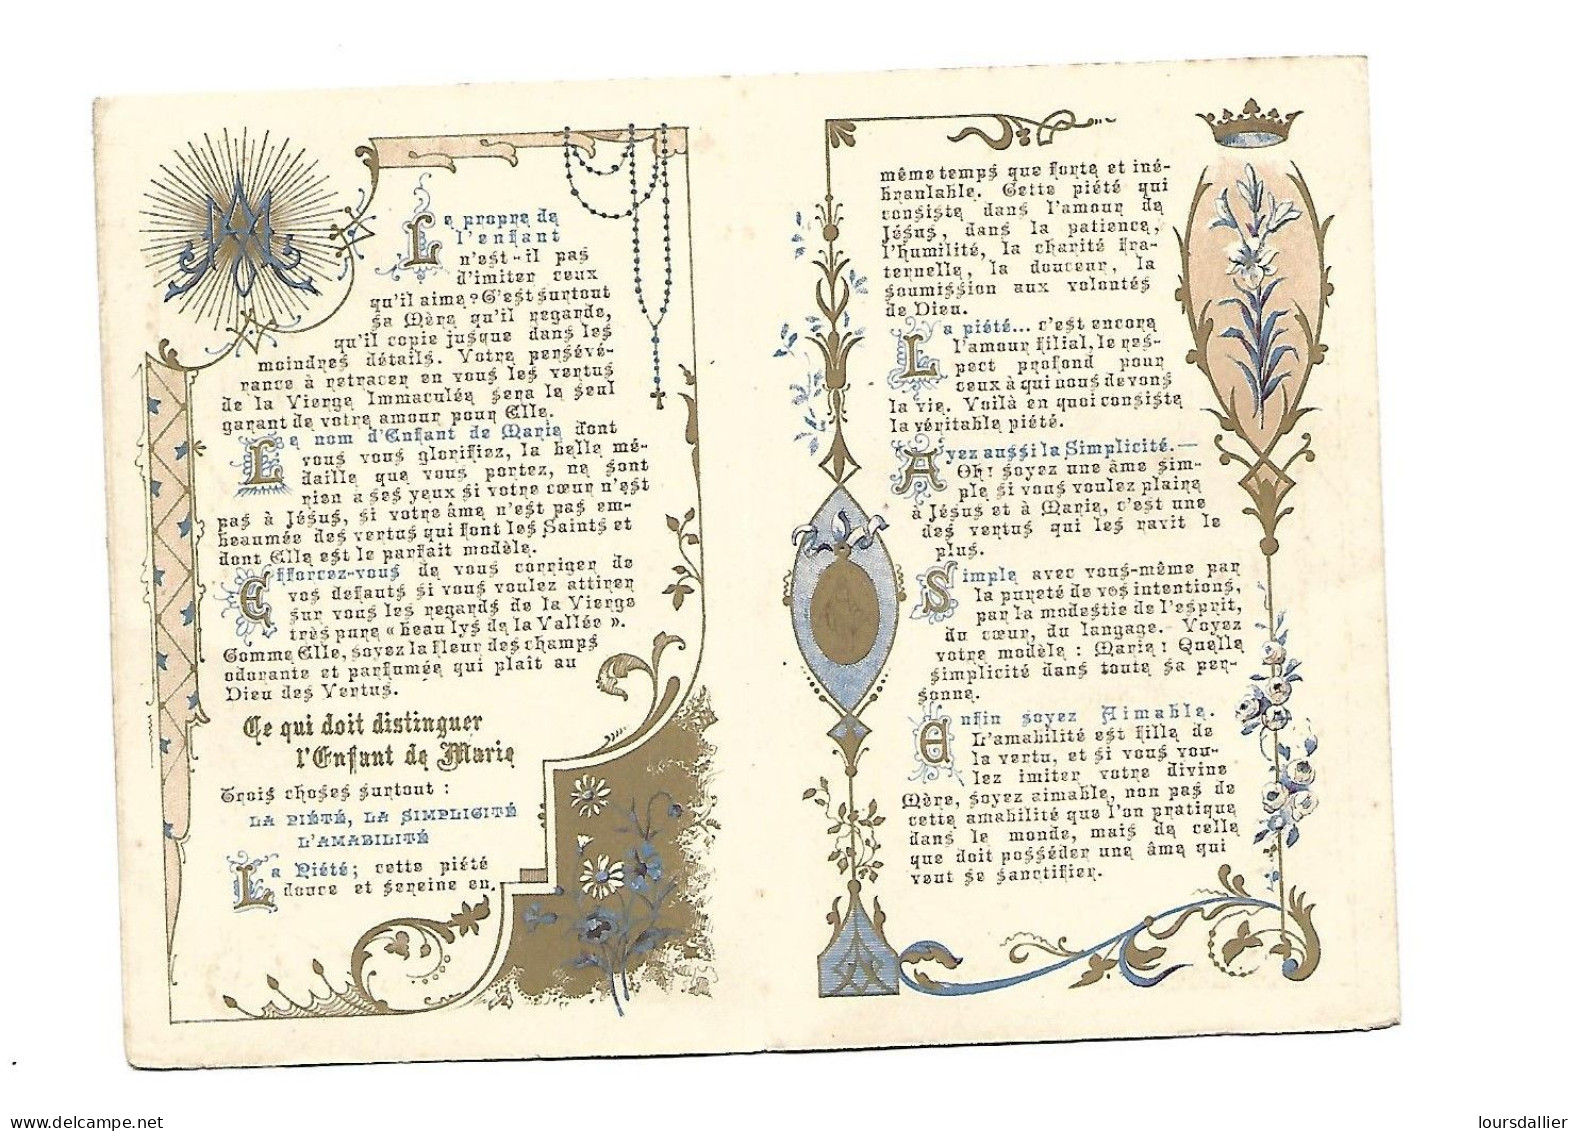 Le propre de
l'enfant
n'est-il pas
d'imiter ceux
qu'il aime? C'est surtout
sa Mère qu'il regarde,
qu'il copie jusque dans les
moindres détails. Votre persévé-
rance à retracer en vous les vertus
de la Vierge Immaculée sera le seul
garant de votre amour pour Elle.
Le nom d'Enfant de Marie dont
vous vous glorifiez, la belle mé-
daille que vous portez, ne sont
rien à ses yeux si votre cœur n'est
pas à Jésus, si votre âme n'est pas em-
beaumée des vertus qui font les Saints et
dont Elle est le parfait modèle.
Efforcez-vous de vous corriger de
vos défauts si vous voulez attirer
sur vous les regards de la Vierge
très pure « beau lys de la Vallée ».
Comme Elle, soyez la fleur des champs
odorante et parfumée qui plait au
Dieu des Vertus.
Ce qui doit distinguer
l'Enfant de Marie
Trois choses surtout :
LA PIÉTÉ, LA SIMPLICITÉ
L'AMABILITÉ
La Piété; cette piété
douce et sereine en
même temps que forte et iné-
branlable. Cette piété qui
consiste dans l'amour de
Jésus, dans la patience,
l'humilité, la charité fra-
ternelle, la douceur, la
soumission aux volontés
de Dieu.
La piété... c'est encore
l'amour filial, le res-
pect profond pour
ceux à qui nous devons
la vie. Voilà en quoi consiste
la véritable piété.
Ayez aussi la Simplicité.—
Oh! soyez une âme sim-
ple si vous voulez plaire
à Jésus et à Marie, c'est une
des vertus qui les ravit le
plus.
Simple avec vous-même par
la pureté de vos intentions,
par la modestie de l'esprit,
du cœur, du langage. Voyez
votre modèle : Marie! Quelle
simplicité dans toute sa per-
sonne.
Enfin soyez Aimable.
L'amabilité est fille de
la vertu, et si vous vou-
lez imiter votre divine
Mère, soyez aimable, non pas de
cette amabilité que l'on pratique
dans le monde, mais de celle
que doit posséder une âme qui
veut se sanctifier.
loursdallier